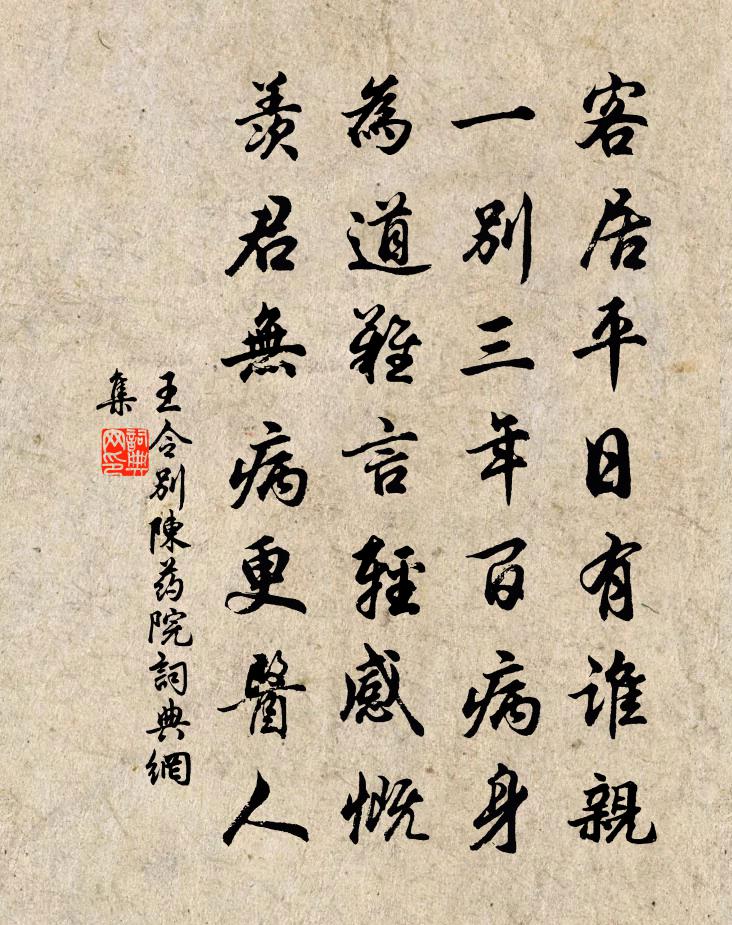 客居平日有誰親
一別三年百病身
為道難言輕感慨
羨君無病更醫人
王令別陳药院詞典網
集
詞典
网印